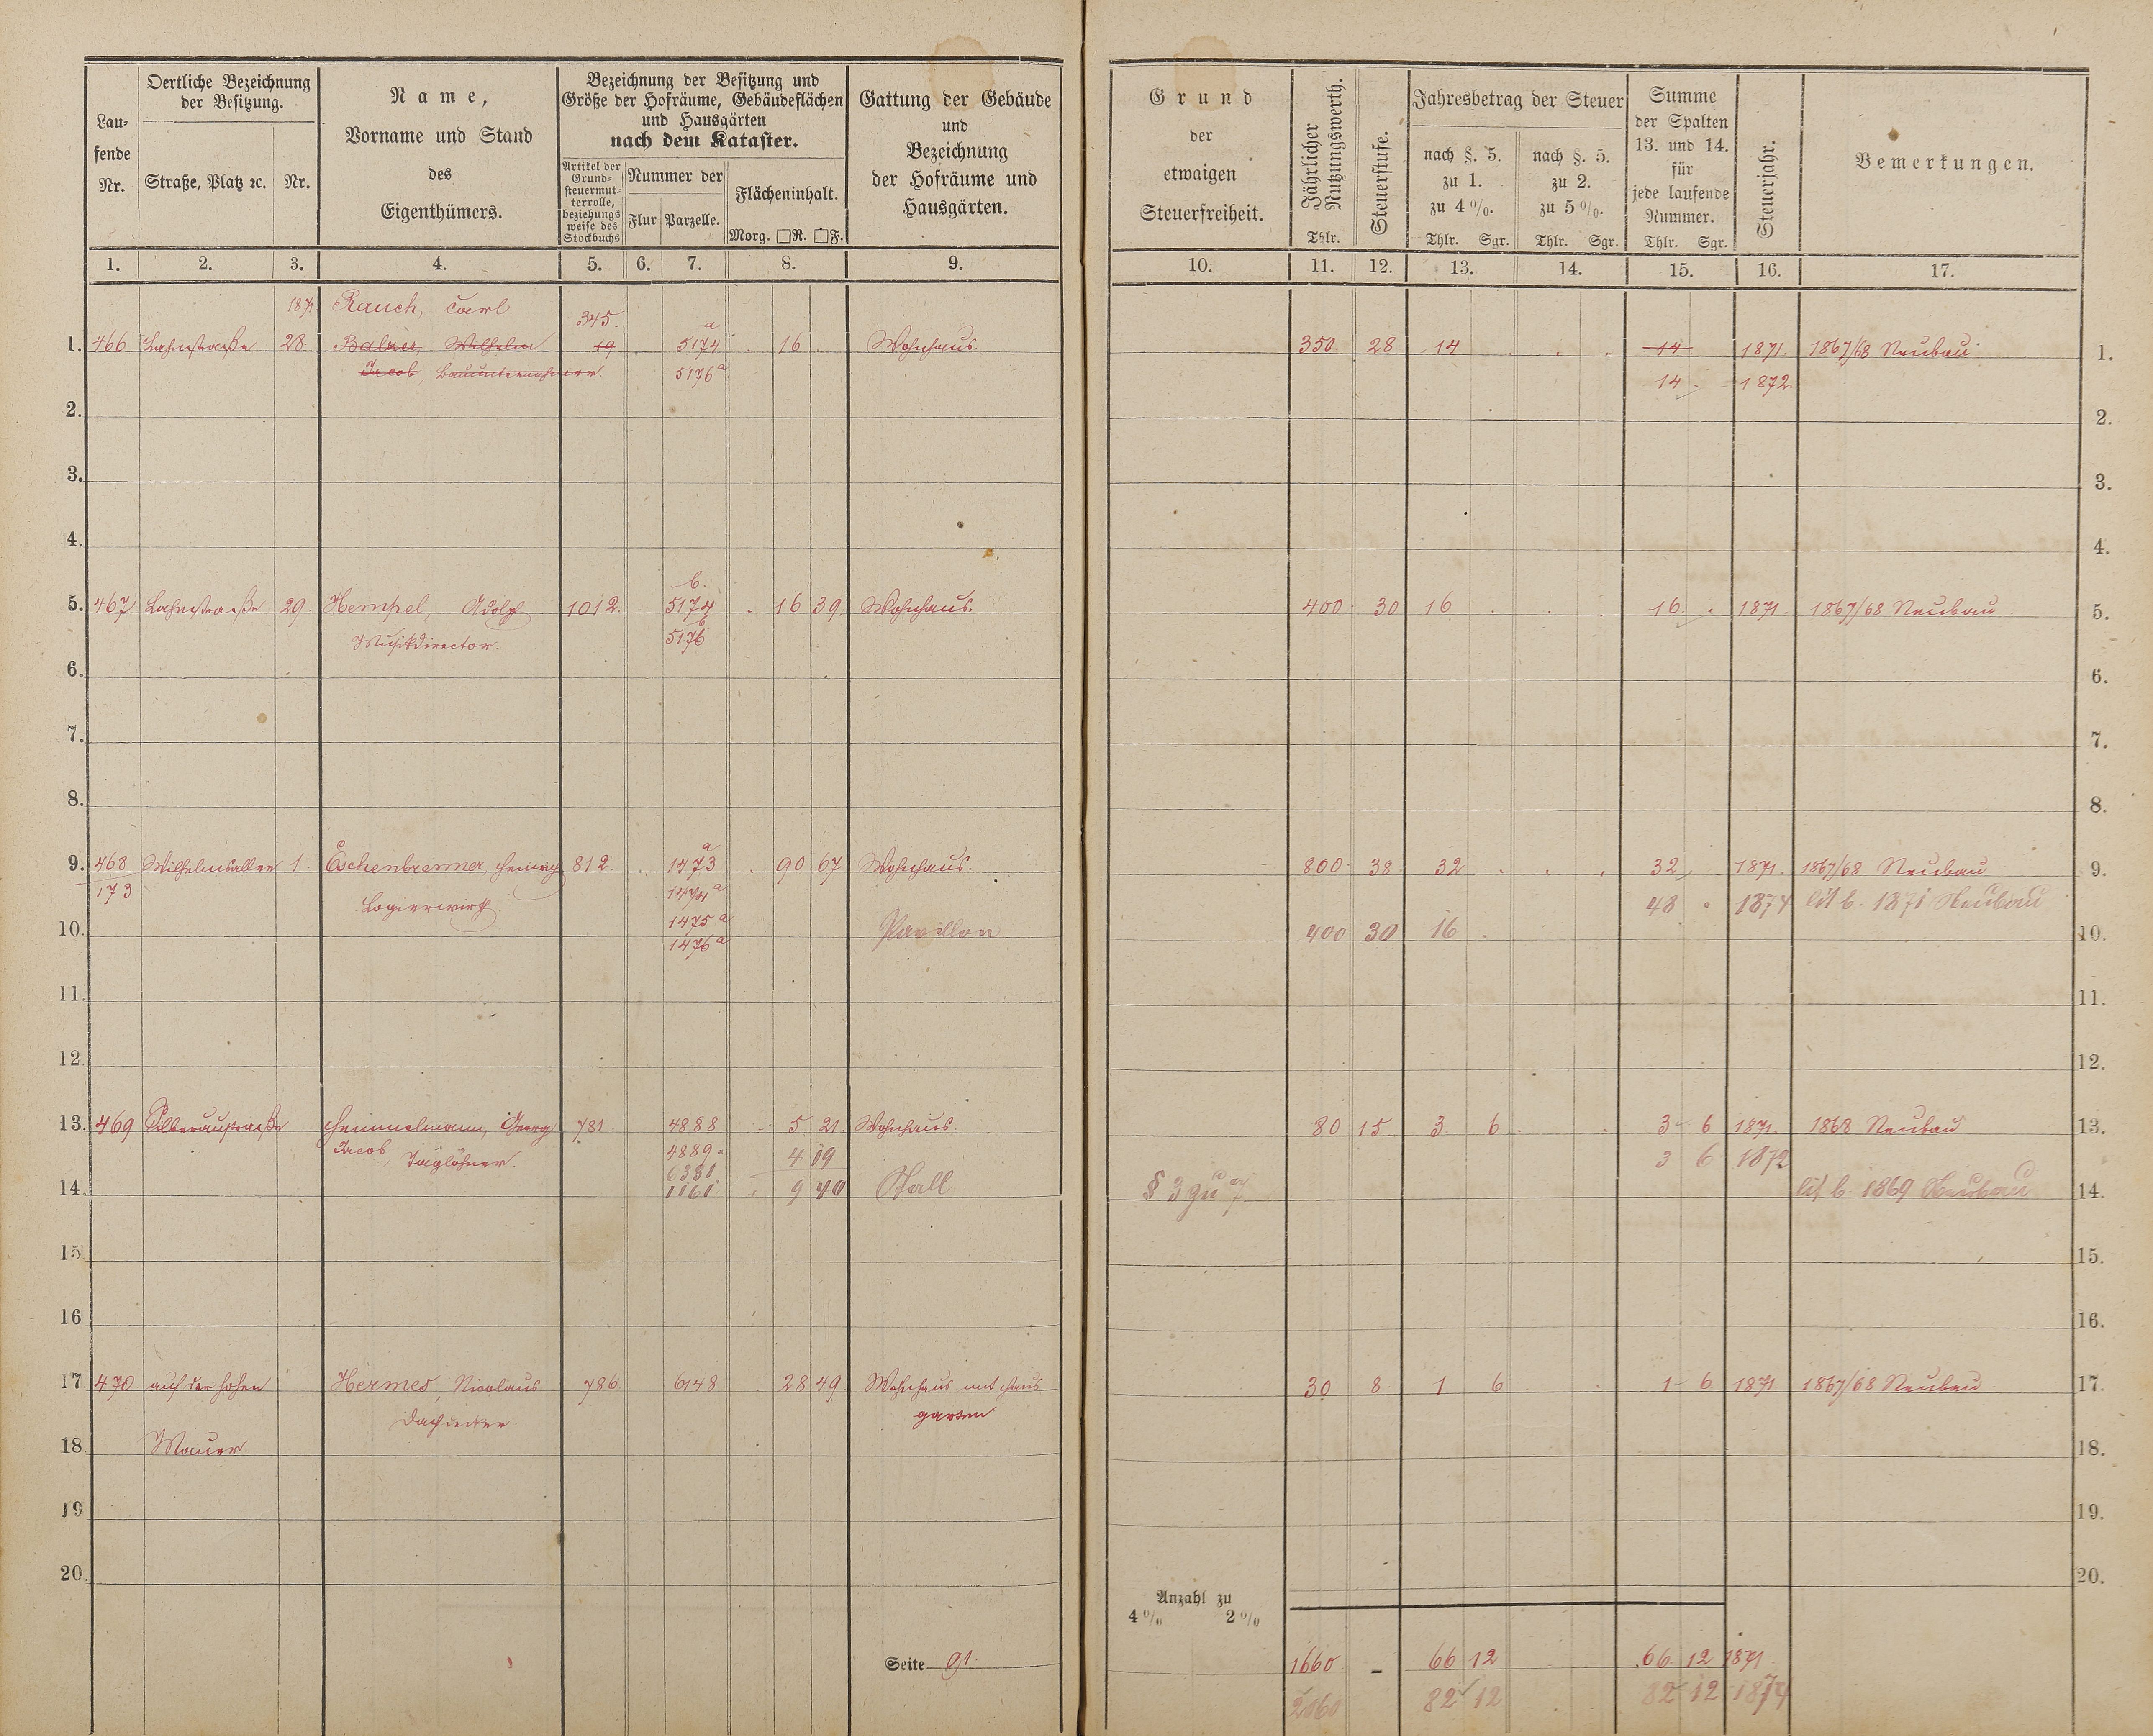 Oertliche Bezeichnung der Besitzung.
Lau-
fende
Nr.
Straße, Platz ꝛc. Nr.
Name,
Vorname und Stand
des
Eigenthümers.
Bezeichnung der Besitzung und
Größe der Hofräume, Gebäudeflächen
und Hausgärten
nach dem Kataster.
Artikel der
Grund-
steuermut-
terrolle,
beziehungs
weise des
Stockbuchs
Nummer der
Flur Parzelle.
Flächeninhalt.
Morg. □R. □F.
Gattung der Gebäude
und
Bezeichnung
der Hofräume und
Hausgärten.
Grund
der
etwaigen
Steuerfreiheit.
Jährlicher
Nutzungswerth.
Thlr.
Steuerstufe.
Jahresbetrag der Steuer
nach §. 5.
zu 1.
zu 4%.
Thlr. Sgr.
nach §. 5.
zu 2.
zu 5%.
Thlr. Sgr.
Summe
der Spalten
13. und 14.
für
jede laufende
Nummer.
Thlr. Sgr.
Steuerjahr.
Bemerkungen.
1. 2. 3. 4. 5. 6. 7. 8. 9. 10. 11. 12. 13. 14. 15. 16. 17.
1871 Rauch, Carl 345. a
1. 466 Lahnstraße 28. Balzer, Wilhelm 19 5174 16 Wohnhaus 350. 28 14 14 1871. 1867/68 Neubau 1.
Jacob, Bauunternehmer. 5176a 14 1872.
2. 2.
3. 3.
4. 4.
b.
5. 467 Lahnstraße 29. Hempel, Adolph 1012. 5174 16 39. Wohnhaus. 400 30 16 16. 1871. 1867/68 Neubau. 5.
Musikdirector. 5176b
6. 6.
7. 7.
8. 8.
a
9. 468 Wilhelmsallee 1. Eschenbrenner Heinrich 812. 1473 90 67 Wohnhaus. 800 38 32 32 1871. 1867/68 Neubau 9.
173 Logierwirth. 1474a 48 1874 lit b. 1871 Neubau
10. 1475a Pavillon 400 30 16 10.
1476a
11. 11.
12. 12.
13. 469 Silberaustraße Heimmelmann, Georg 781 4888 5 21. Wohnhaus. 80 15 3. 6 3 6 1871. 1868 Neubau 13.
Jacob, Taglöhner. 4889 4 19 3 6 1872
6381
14. 1161 9 40 Stall § 3 zu 7. lit b. 1869 Neubau 14.
15. 15.
16 16.
17 470 auf der hohen Hermes, Nicolaus 786 6148 28 49. Wohnhaus mit Haus 30 8. 1 6 1 6 1871 1867/68 Neubau 17.
Dachdecker garten
18 Mauer. 18.
19 19.
20. 20.
Anzahl zu
4% 2%
Seite 91. 1660 – 66 12 66. 12 1871.
2060 82 12 82 12 1874